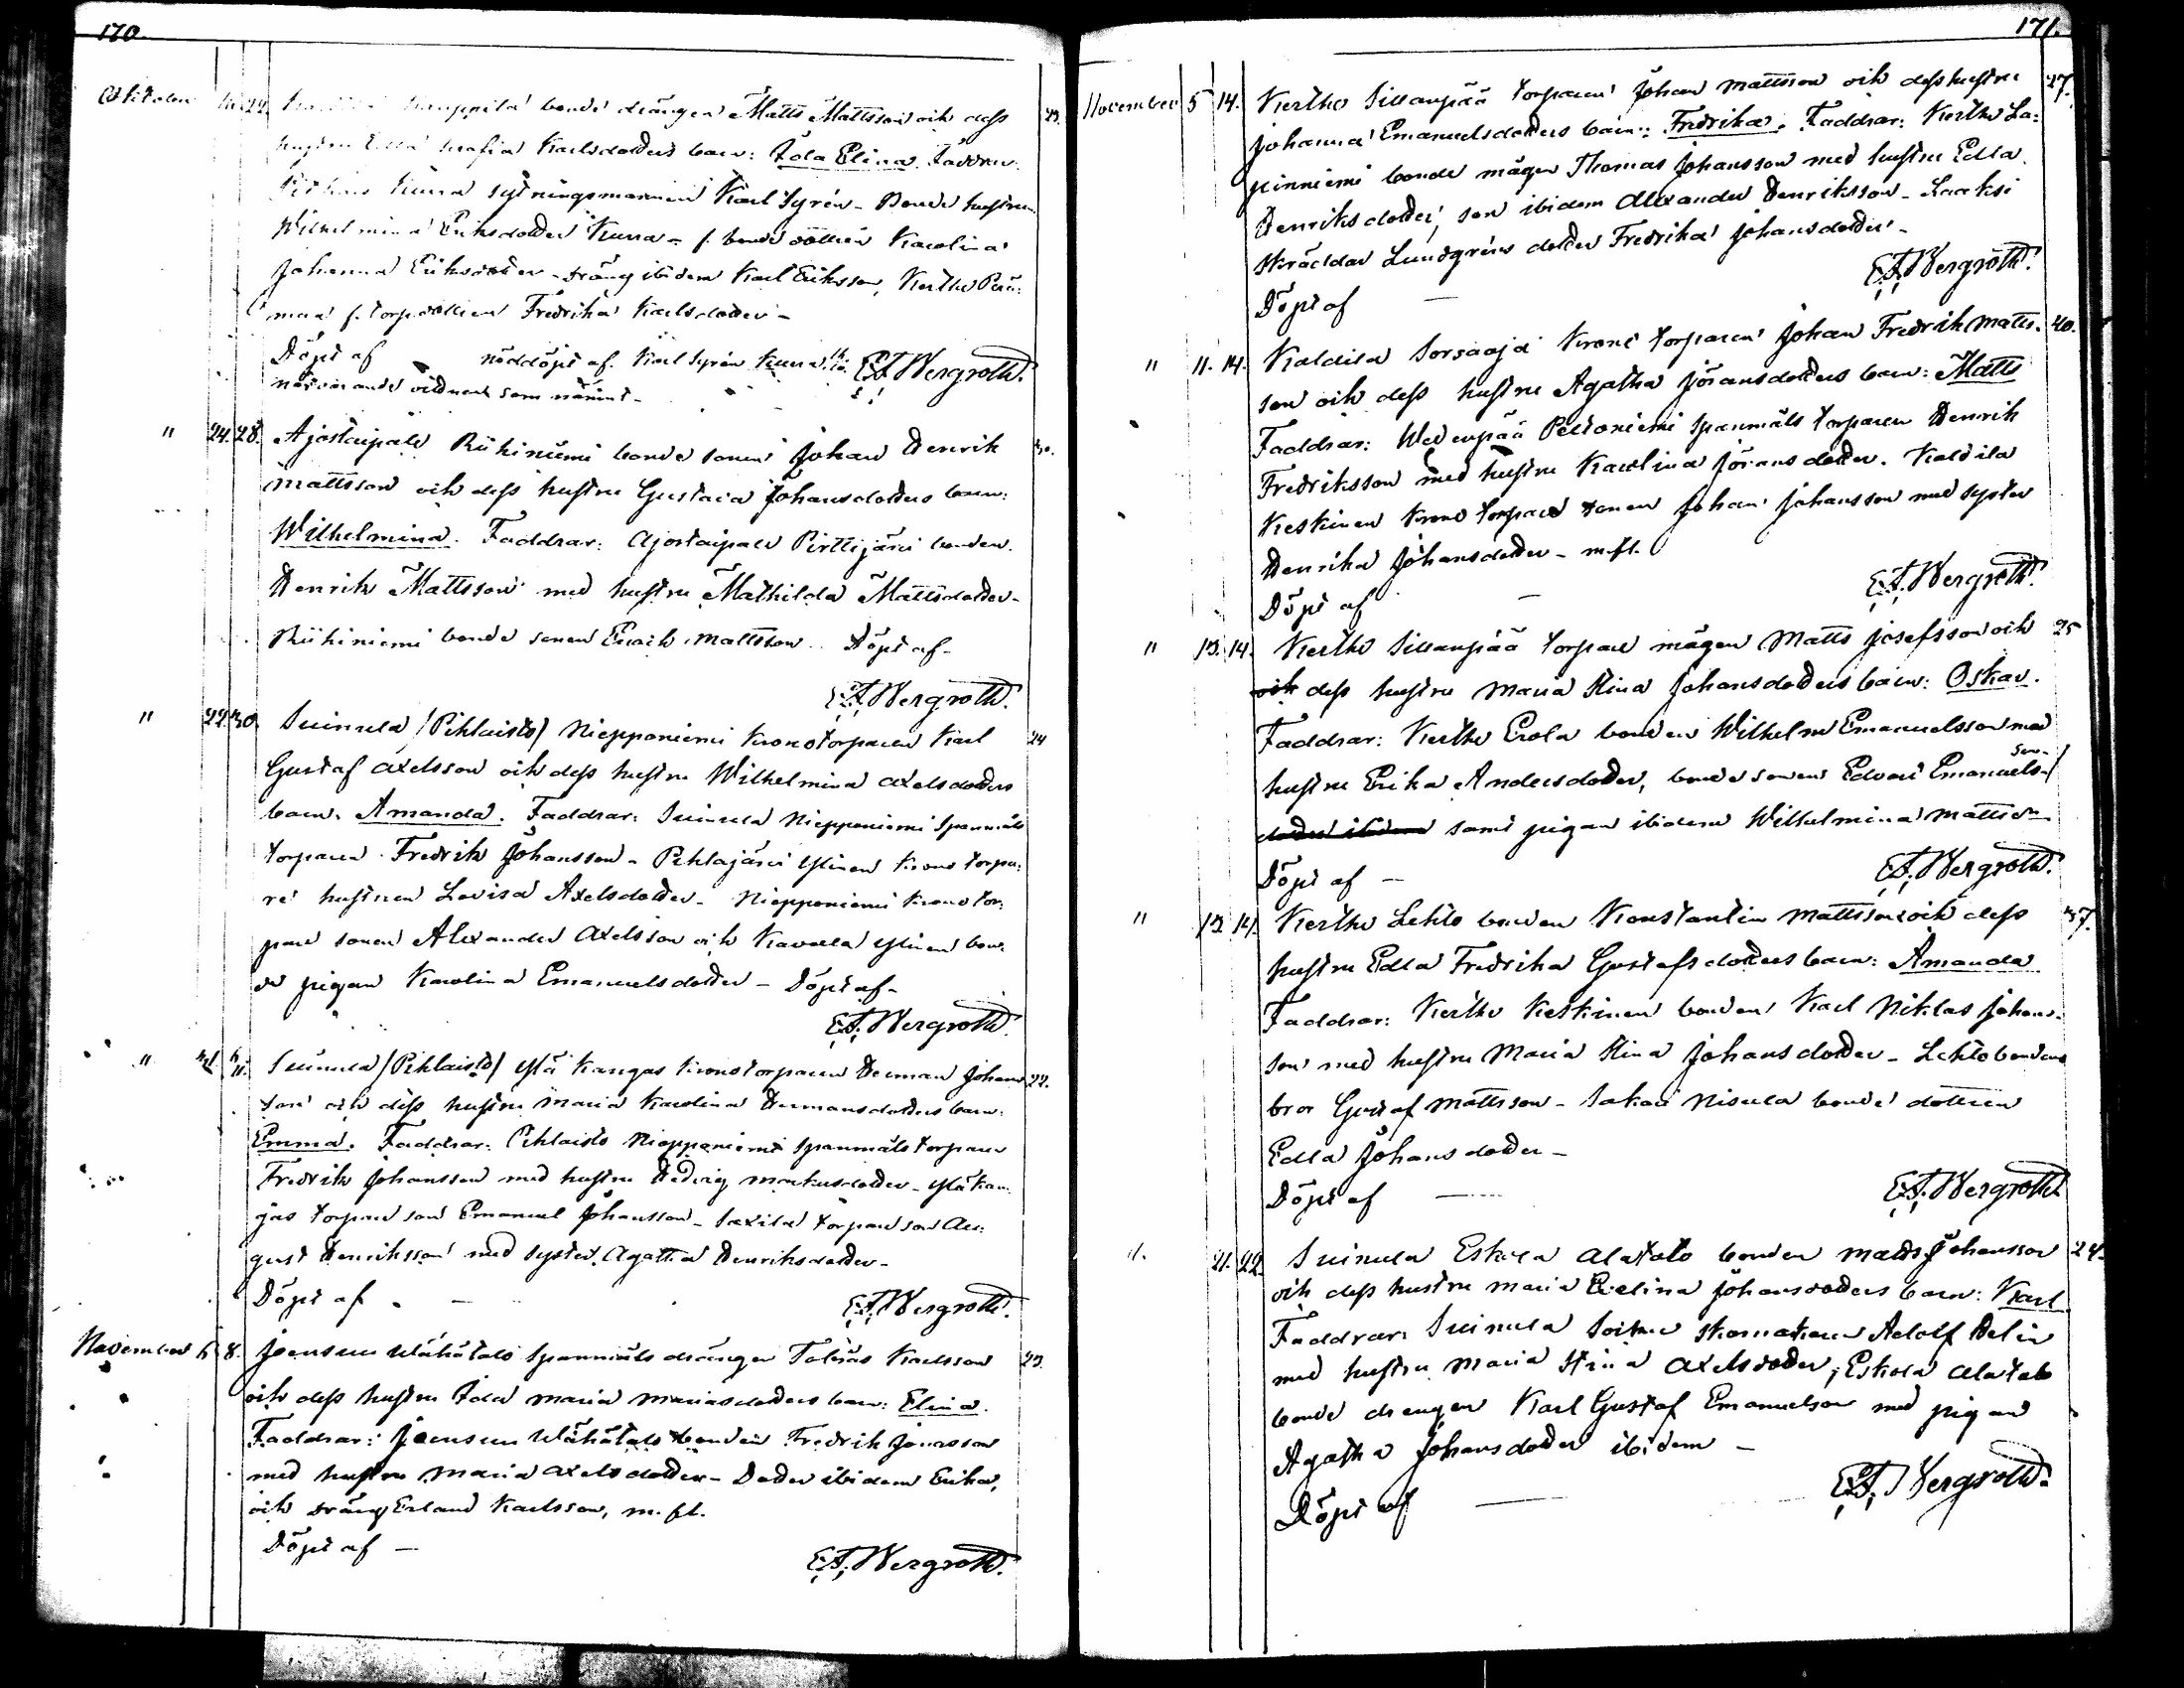 170.
October 22. bonde drängen Matts Mattsson och dess 23.
hustru Edla Karlsdotters barn: Ida Elina. Faddrar:
sytningsmannen Karl Syrén - Bonde hustrun
Wilhelmina Eriksdotter Kuura - f. bonde dottren Karolina
Johanna Eriksdotter - dräng ibidem Karl Eriksson, Kertku Perä:
maa f. torp.dottren Fredrika Karlsdotter -
Döpt af nöddöpt af Karl Syrén Kuura E. F. Wergroth.
närvarande vittnen som nämnt -
" 24. 28. Ajostaipale Riihiniemi bonde sonen Johan Henrik 30.
Mattsson och dess hustru Gustava Johansdotters barn:
Wilhelmina. Faddrar: Ajostaipale Pirttijärvi bonden
Henrik Mattsson med hustru Mathilda Mattsdotter -
Riihiniemi bonde sonen Enoch Mattsson. Döpt af -
E. F. Wergroth.
" 22. 30. Suinula /Pihlaisto/ Niepponiemi Kronotorparen Karl 24
Gustaf Axelsson och dess hustru Wilhelmina Axelsdotters
barn: Amanda. Faddrar: Suinula Niepponiemi Spannmåls
torparen Fredrik Johansson - Pihlajärvi Ylinen Krono torpa:
re hustrun Lovisa Axelsdotter - Niepponiemi Krono tor:
pare sonen Alexander Axelsson och Kavala Ylinen bon:
de pigan Karolina Emanuelsdotter - Döpt af -
E. F. Wergroth.
" 31. Suinula /Pihlaisto/ Ylä Kangas Kronotorparen Herman Johans 22.
son och dess hustru Maria Karolina Hermansdotters barn:
Emma. Faddrar: Pihlaisto Niepponiemi Spannmåls torparen
Fredrik Johansson med hustru Hedvig Markusdotter - Yläkan:
gas torpare son Emanuel Johansson - Saxila torpare son Au:
gust Henriksson med syster Agatha Henriksdotter -
Döpt af - E. F. Wergroth.
November 6 8. Joensuu Wähätalo Spannmåls drängen Tobias Karlsson 23.
och dess hustru Ida Maria Mariasdotters barn: Elina.
Faddrar: Joensuu Wähätalo bonden Fredrik Jonasson
med hustru Maria Axelsdotter - Dotter ibidem Erika,
och dräng Erland Karlsson, m. fl.
Döpt af - E. F. Wergroth.
171.
November 5 14. Kertku Sillanpää torparen Johan Mattsson och dess hustru 27.
Johanna Emanuelsdotters barn: Fredrika. Faddrar: Kertku La:
pinniemi bonde mågen Thomas Johansson med hustru Edla
Henriksdotter, son ibidem Alexander Henriksson - Laaksi
skräddar Lundgréns dotter Fredrika Johansdotter -
Döpt af - E. F. Wergroth.
" 11. 14. Kaldila Sorsaoja Krono torparen Johan Fredrik Matts: 40.
son och dess hustru Agatha Göransdotters barn: Matts
Faddrar: Wedenpää Peltoniemi Spannmåls torparen Henrik
Fredriksson med hustru Karolina Göransdotter. Kaldila
Keskinen Krono torpare sonen Johan Johansson med syster
Henrika Johansdotter - m. fl.
Döpt af - E. F. Wergroth.
" 13. 14. Kertku Sillanpää torpare mågen Matts Josefsson och 25
och dess hustru Maria Stina Johansdotters barn: Oskar.
Faddrar: Kertku Erola bonden Wilhelm Emanuelsson med
hustru Erika Andersdotter, bonde sonen Edvard Emanuels-
son
dotter ibidem samt pigan ibidem Wilhelmina Mattsdr.
Döpt af - E. F. Wergroth.
" 13 14. Kertku Lehto bonden Konstantin Mattsson och dess 37.
hustru Edla Fredrika Gustafsdotters barn: Amanda
Faddrar: Kertku Keskinen bonden Karl Niklas Johans:
son med hustru Maria Stina Johansdotter - Lehto bondens
bror Gustaf Mattsson - Sakari Nisula bonde dottren
Edla Johansdotter -
Döpt af - E. F. Wergroth.
" 21. 22. Suinula Eskola Alatalo bonden Matts Johansson 24.
och dess hustru Maria Evelina Johansdotters barn: Karl
Faddrar: Suinula skomakaren Adolf Helin
med hustru Maria Stina Axelsdotter; Eskola Alatalo
bonde drengen Karl Gustaf Emanuelson med pigan
Agatha Johansdotter ibidem -
Döpt af - E. F. Wergroth.